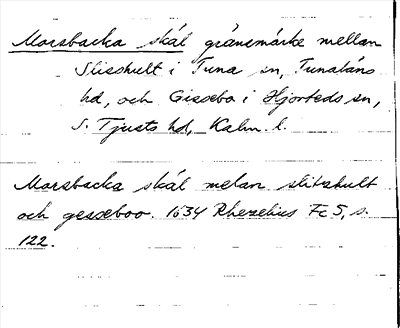 Morsbacka skål gränsmärke mellan
Slisshult i Tuna sn, Tunaläns
hd, och Gissebo i Hjorteds sn,
S. Tjusts hd, Kalm. l.
Morsbacka skål melan slitzhult
och gesseboo. 1634 Rhezelius Fc 5, s.
122.